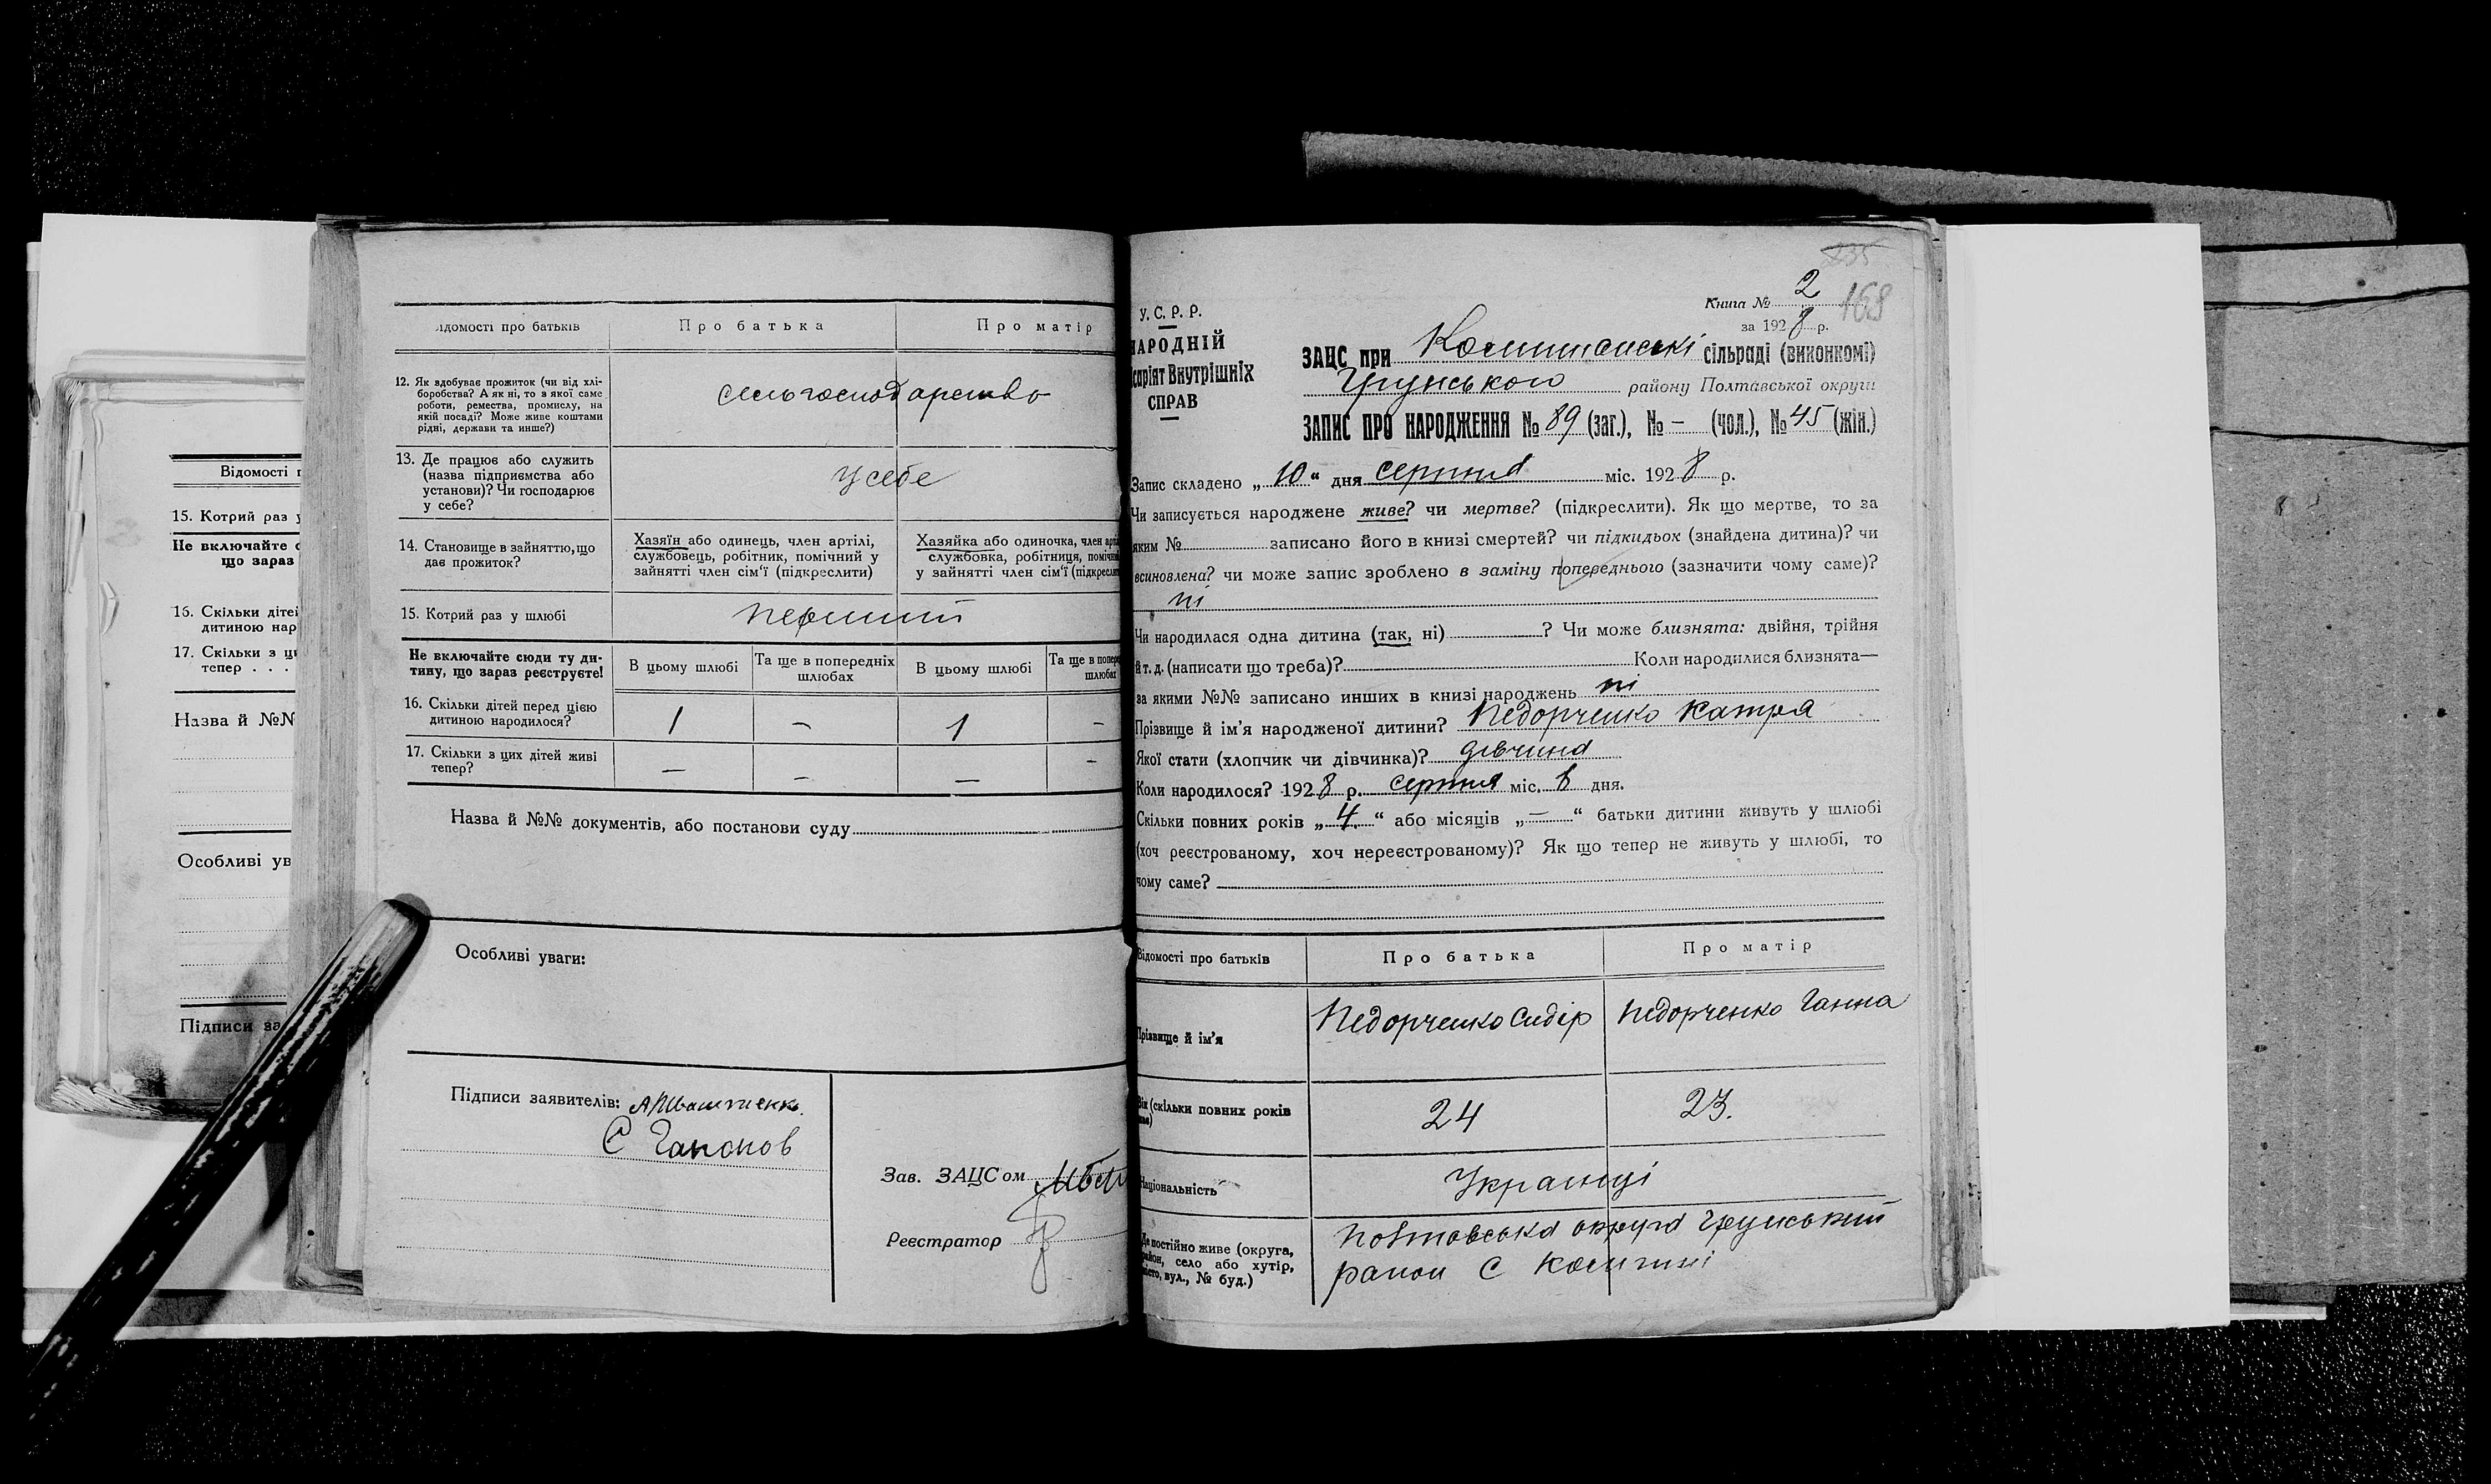 Відомості п
15. Котрий раз у
Не включайте с
що зараз
16. Скільки дітей
дитиною нар
17. Скільки з ці
тепер . . .
Назва й №№
Особливі ув
Підписи за
ідомості про батьків
Про батька
Про матір
12. Як здобуває прожиток (чи від хлі-
боробства? А як ні, то з якої саме
роботи, ремества, промислу, на
якій посаді? Може живе коштами
рідні, держави та инше?)
сельгосподарство
13. Де працює або служить
(назва підприємства або
установи)? Чи господарює
у себе?
у себе
14. Становище в зайняттю, що
дає прожиток?
Хазяїн або одинець, член артілі,
службовець, робітник, помічний у
зайнятті член сім'ї (підкреслити)
Хазяйка або одиночка, член арті
службовка, робітниця, помічни
у зайнятті член сім'ї (підкреслит
15. Котрий раз у шлюбі
перший
Не включайте сюди ту ди-
тину, що зараз реєструєте!
В цьому шлюбі
Та ще в попередніх
шлюбах
В цьому шлюбі
Та ще в попере
шлюбах
16. Скільки дітей перед цією
дитиною народилося?
1 – 1 –
17. Скільки з цих дітей живі
тепер?
– – – –
Назва й №№ документів, або постанови суду
Особливі уваги:
Підписи заявителів:
С Гапонов
Зав. ЗАЦСом
Реєстратор
У. С. Р. Р.
НАРОДНІЙ
ісаріят Внутрішніх
СПРАВ
235
Книга № 2
168
за 1928 р.
ЗАЦС при Комишанські сільраді (виконкомі)
Грунського району Полтавської округи
ЗАПИС ПРО НАРОДЖЕННЯ № 89 (заг.), № – (чол.), № 45 (жін.)
Запис складено „10“ дня серпня міс. 1928 р.
Чи записується народжене живе? чи мертве? (підкреслити). Як що мертве, то за
яким № записано його в книзі смертей? чи підкидьок (знайдена дитина)? чи
всиновлена? чи може запис зроблено в заміну попереднього (зазначити чому саме)?
ні
Чи народилася одна дитина (так, ні) ? Чи може близнята: двійня, трійня
й т. д. (написати що треба)? Коли народилися близнята—
за якими №№ записано инших в книзі народжень ні
Прізвище й ім'я народженої дитини? Недорченко Катря
Якої стати (хлопчик чи дівчинка)? дівчина
Коли народилось? 1928 р. серпня міс. 8 дня.
Скільки повних років „4.“ або місяців „—“ батьки дитини живуть у шлюбі
(хоч реєстрованому, хоч нереєстрованому)? Як що тепер не живуть у шлюбі, то
чому саме?
Відомості про батьків
Про батька
Про матір
Прізвище й ім'я
Недорченко Сидір
Недорченко Ганна
Вік (скільки повних років
24
23.
Національність
Українці
Де постійно живе (округа,
район, село або хутір,
місто, вул., № буд.)
Полтавська округа Грунський
район С Комиші